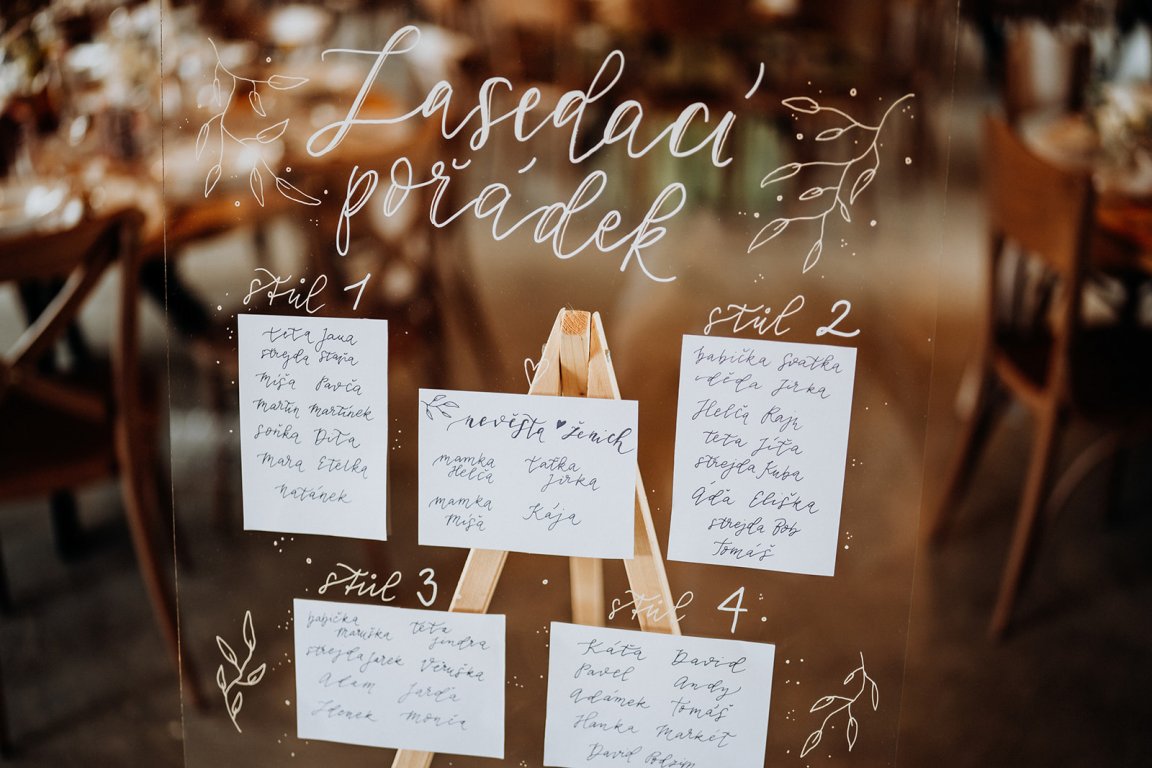 Zasedací
pořádek
stůl 1
teta Jana
strejda Stáňa
Míša Pavča
Martin Martínek
Soňka Dita
Mára Etelka
Natánek
nevěsta ♥ ženich
mamka Helča
taťka Jirka
mamka Míša
Kája
stůl 2
babička Svatka
děda Jirka
Helča Raju
teta Jíťa
strejda Kuba
Áďa Eliška
strejda Bob
Tomáš
stůl 3
babička Maruška
teta Jindra
strejda Jarek Veruška
Adam Jarda
Zdenek Monča
stůl 4
Káťa David
Pavel Andy
Adámek Tomáš
Hanka Markét
David Podzim